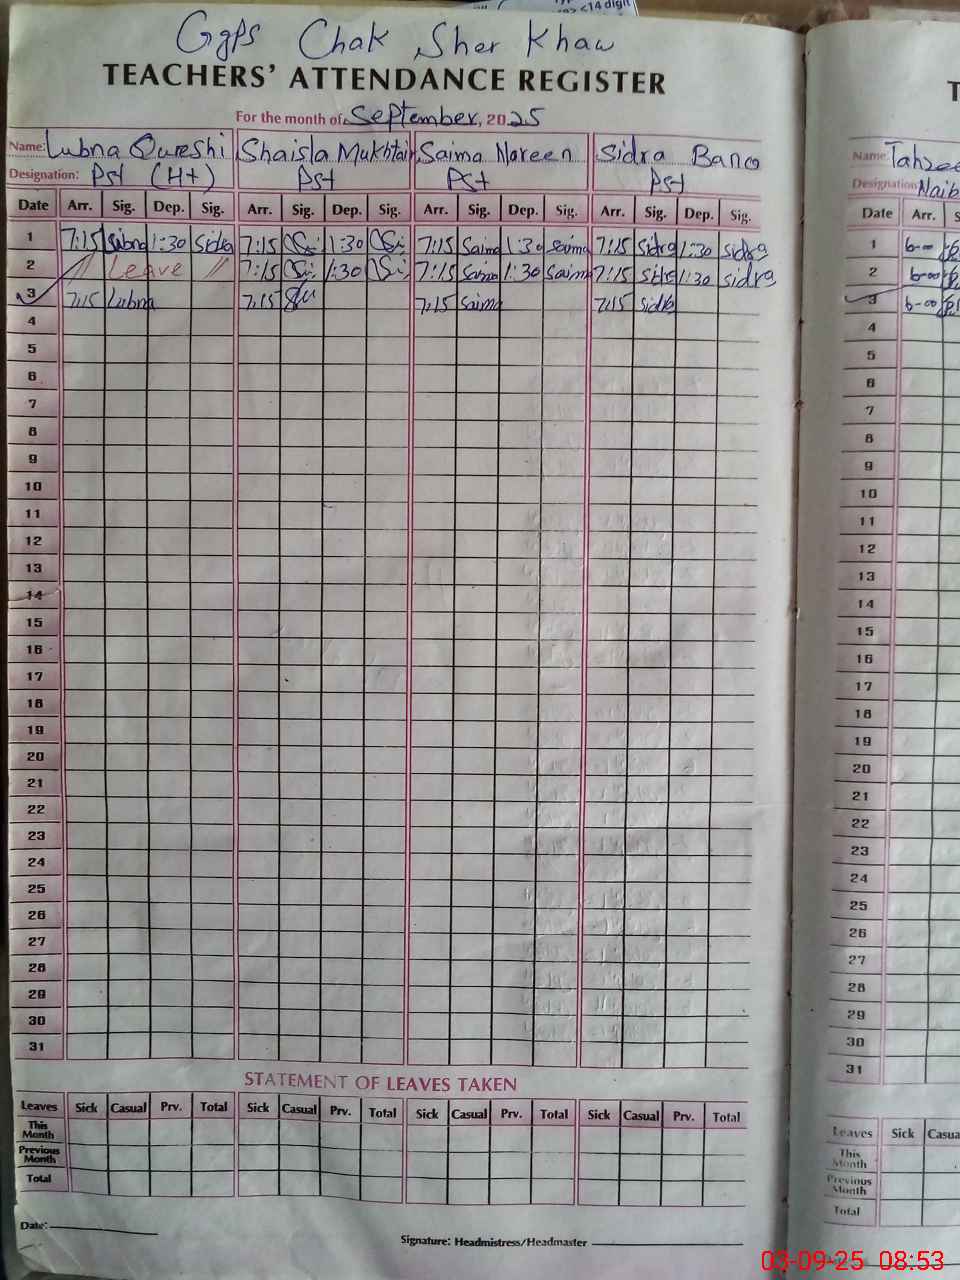 Ggps Chak Sher Khan
TEACHERS' ATTENDANCE REGISTER
For the month of September, 2025
Name: Lubna Qureshi Shaisla Mukhtair Saima Noreen Sidra Bano
Designation: Pst (H+) Pst Pst Pst
Date Arr. Sig. Dep. Sig. Arr. Sig. Dep. Sig. Arr. Sig. Dep. Sig. Arr. Sig. Dep. Sig.
1 7:15 1:30 Sidra 7:15 1:30 7:15 Saima 1:30 Saima 7:15 Sidra 1:30 sidra
2 // Leave // 7:15 1:30 7:15 Saima 1:30 Saima 7:15 Sidra 1:30 sidra
3 7:15 Lubna 7:15 7:15 Saima 7:15 Sidra
4
5
6
7
8
9
10
11
12
13
14
15
16
17
18
19
20
21
22
23
24
25
26
27
28
29
30
31
STATEMENT OF LEAVES TAKEN
Leaves Sick Casual Prv. Total Sick Casual Prv. Total Sick Casual Prv. Total Sick Casual Prv. Total
This Month
Previous Month
Total
Date:
Signature: Headmistress/Headmaster
Name:
Designation: Naib
Date Arr.
1 6-00
2 6-00
3 6-00
4
5
6
7
8
9
10
11
12
13
14
15
16
17
18
19
20
21
22
23
24
25
26
27
28
29
30
31
Leaves Sick
This Month
Previous Month
Total
03-09-25 08:53